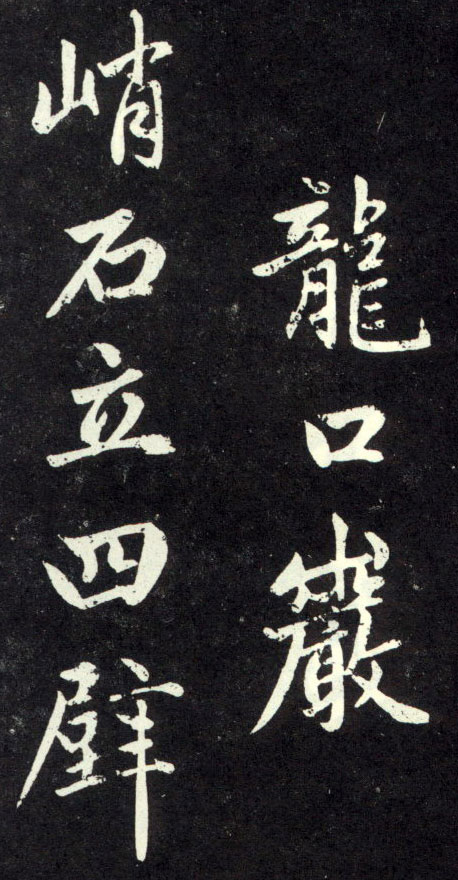 龍口巖
峭石立四壁